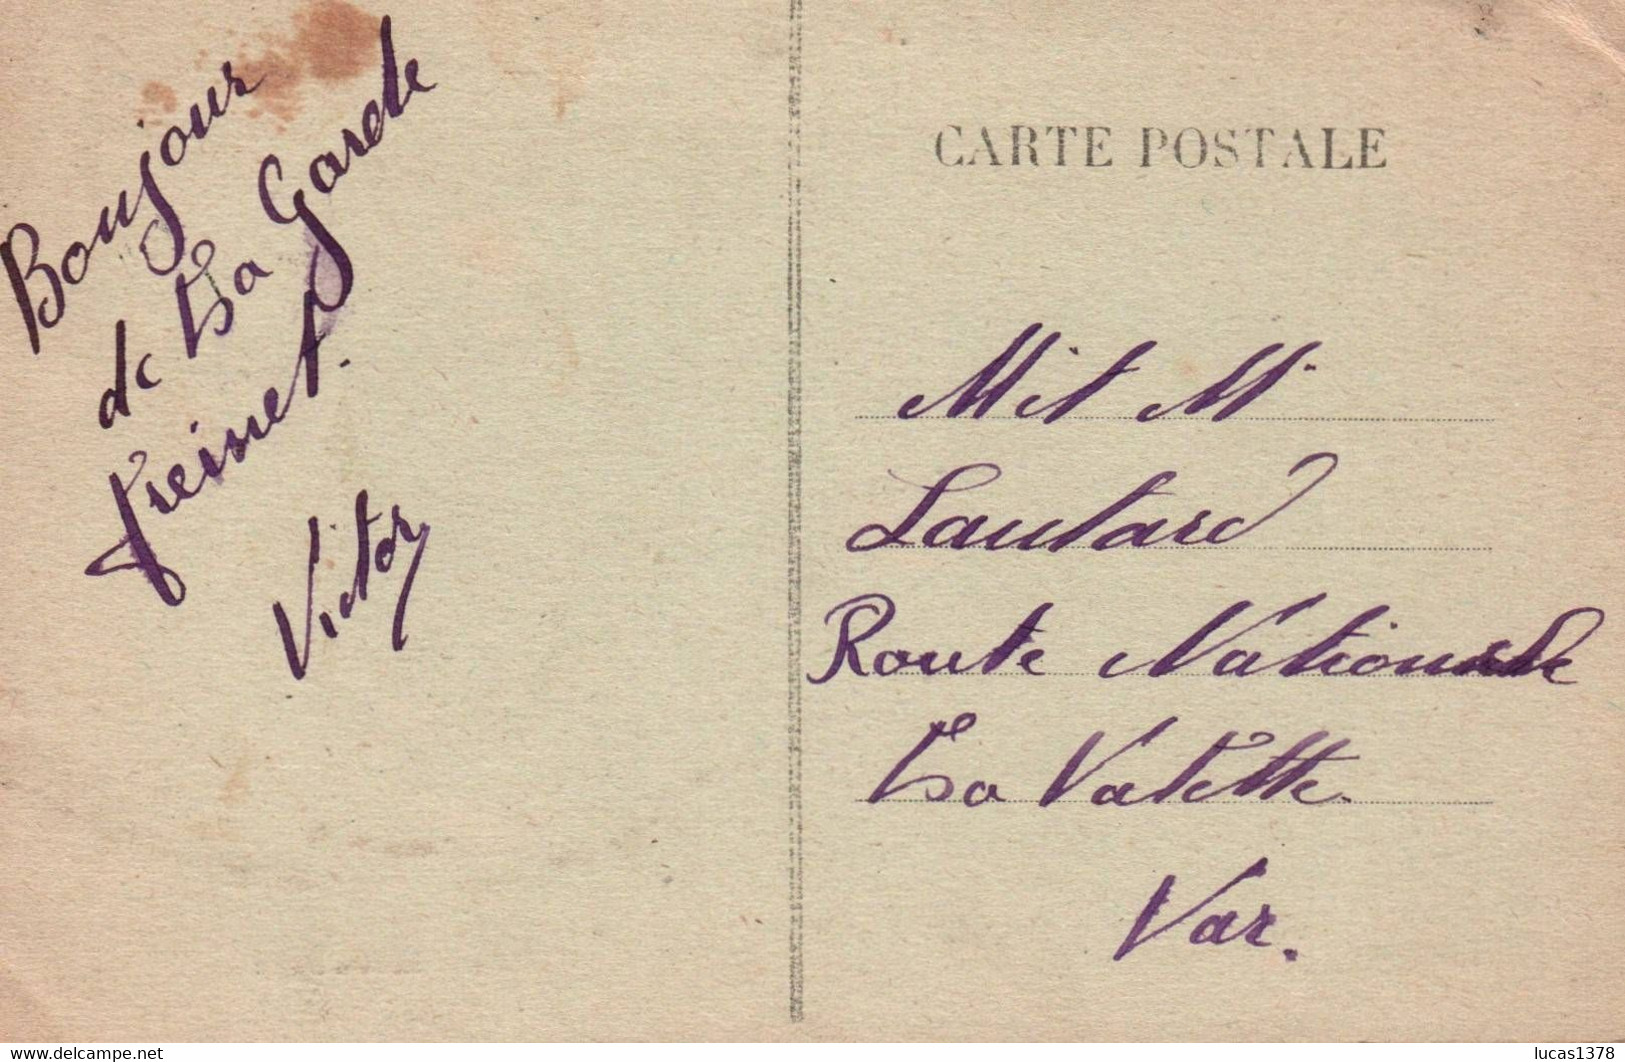 Bonjour
de La Garde
Freinet.
Victor
CARTE POSTALE
M
Lautard
Route Nationale
La Valette
Var.
delcampe.net
lucas1378